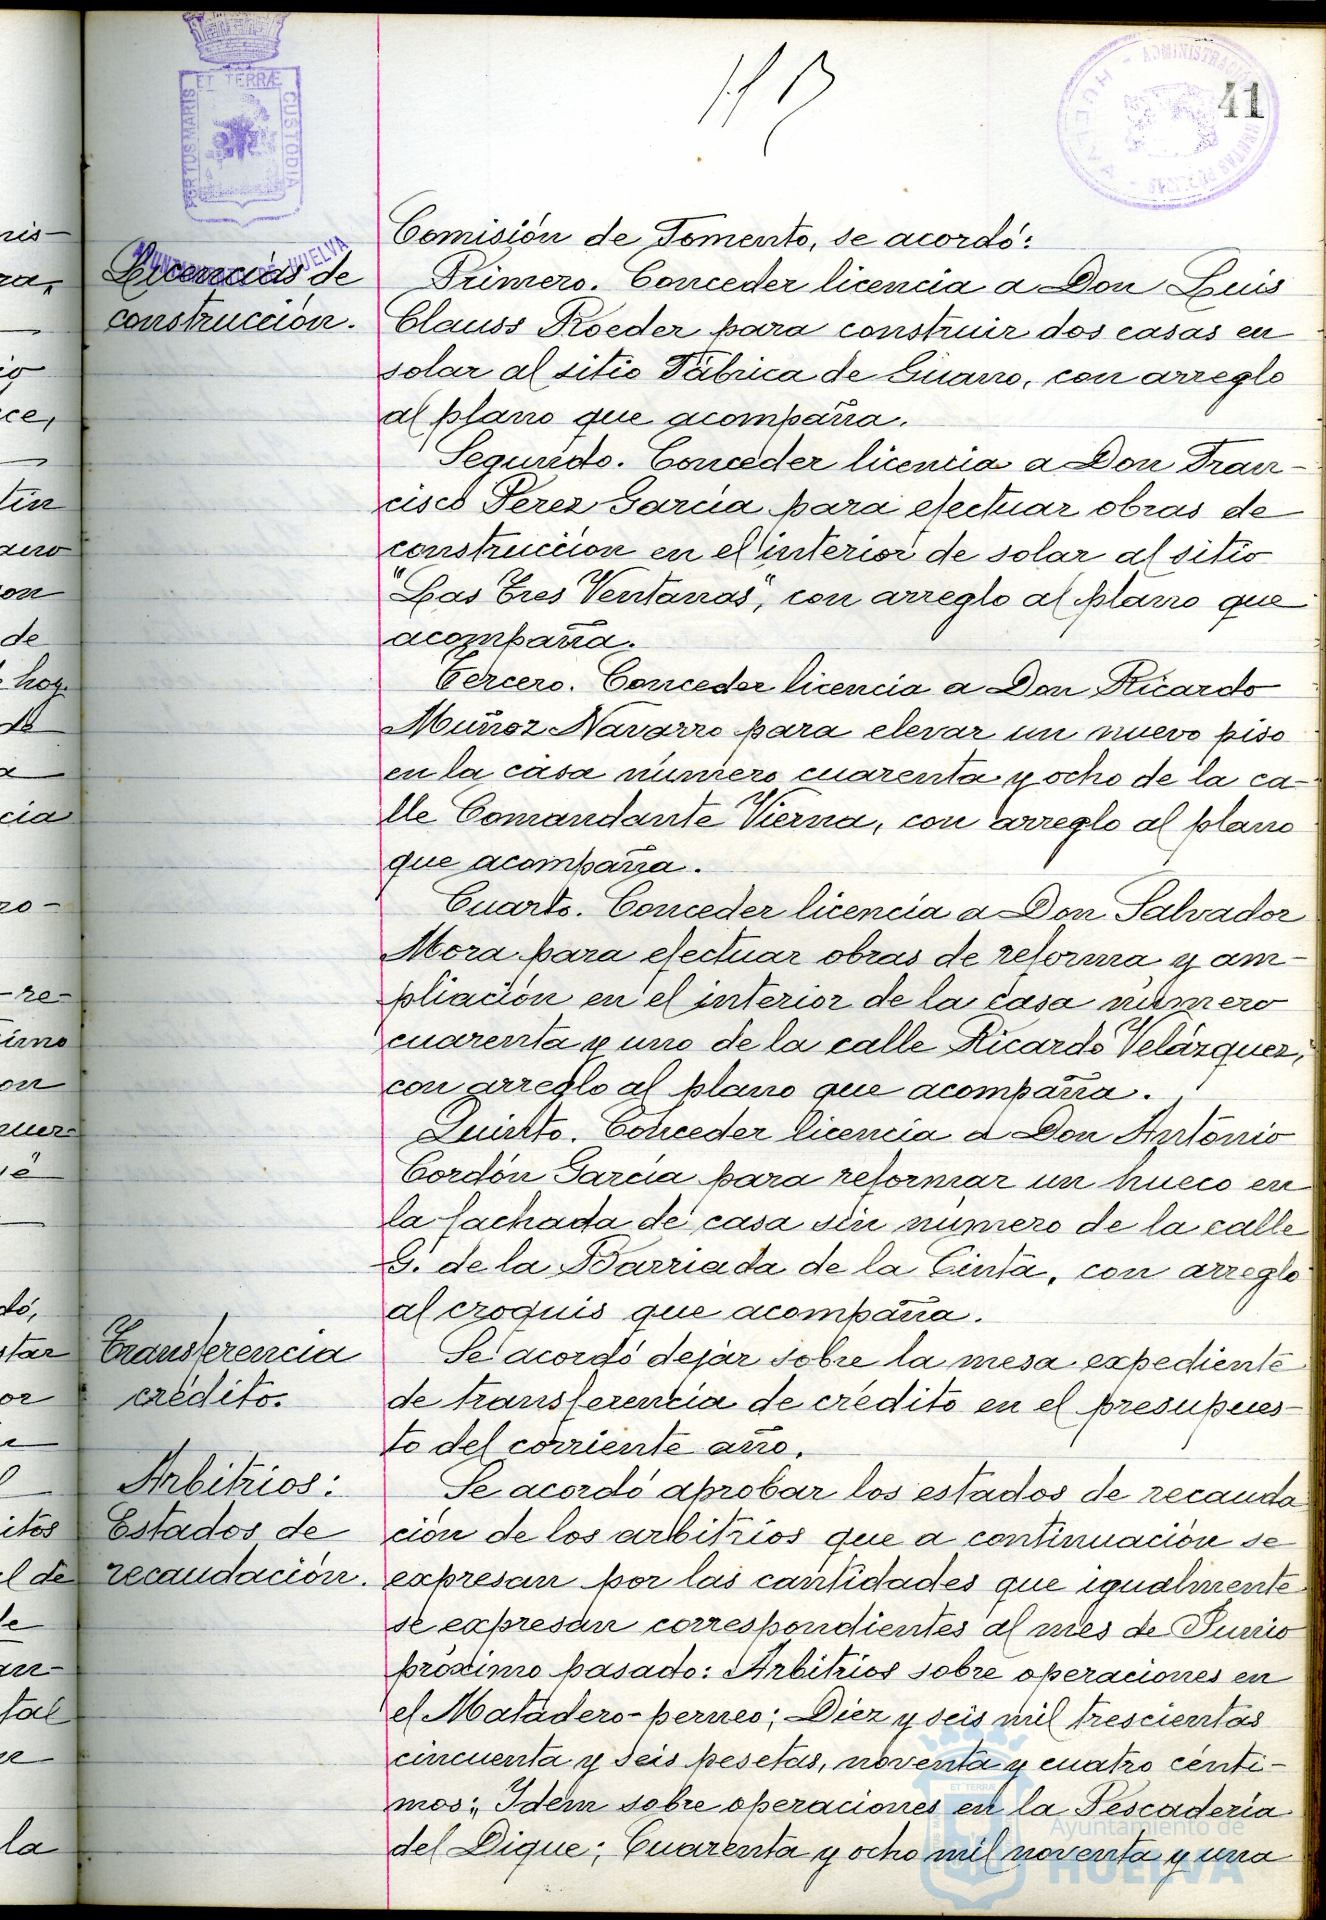 41
ET TERRÆ
PORTUS MARIS
CUSTODIA
AYUNTAMIENTO DE HUELVA
HUELVA
Licencias de
construcción.
Comisión de Fomento, se acordó:
Primero. Conceder licencia a Don Luis
Clauss Roeder para construir dos casas en
solar al sitio Fábrica de Guano, con arreglo
al plano que acompaña.
Segundo. Conceder licencia a Don Fran-
cisco Perez García para efectuar obras de
construcción en el interior de solar al sitio
"Las Tres Ventanas", con arreglo al plano que
acompaña.
Tercero. Conceder licencia a Don Ricardo
Muñoz Navarro para elevar un nuevo piso
en la casa número cuarenta y ocho de la ca-
lle Comandante Vierna, con arreglo al plano
que acompaña.
Cuarto. Conceder licencia a Don Salvador
Mora para efectuar obras de reforma y am-
pliación en el interior de la casa número
cuarenta y uno de la calle Ricardo Velázquez,
con arreglo al plano que acompaña.
Quinto. Conceder licencia a Don Antonio
Cordón García para reformar un hueco en
la fachada de casa sin número de la calle
G. de la Barriada de la Cinta, con arreglo
al croquis que acompaña.
Transferencia
crédito.
Se acordó dejar sobre la mesa expediente
de transferencia de crédito en el presupues-
to del corriente año.
Arbitrios:
Estados de
recaudación.
Se acordó aprobar los estados de recauda
ción de los arbitrios que a continuación se
expresan por las cantidades que igualmente
se expresan correspondientes al mes de Junio
próximo pasado: Arbitrios sobre operaciones en
el Matadero-perneo; Diez y seis mil trescientas
cincuenta y seis pesetas, noventa y cuatro cénti-
mos:, Idem sobre operaciones en la Pescadería
del Dique; Cuarenta y ocho mil noventa y una
Ayuntamiento de
HUELVA